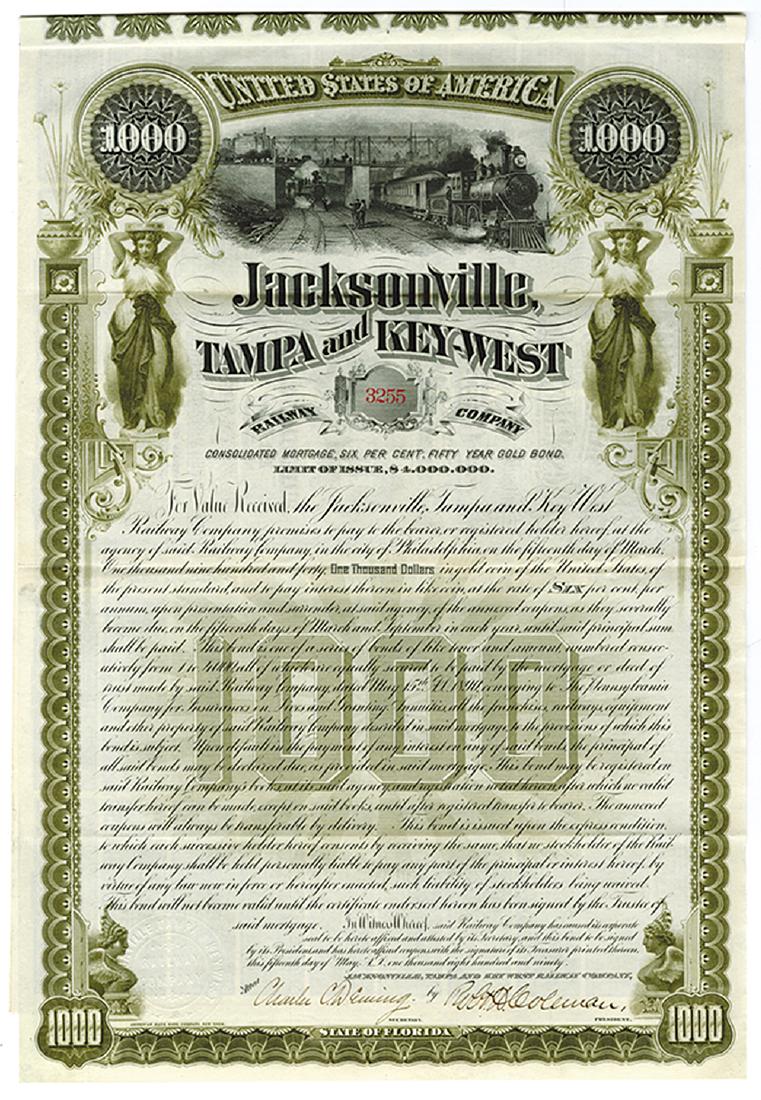 UNITED STATES OF AMERICA
1000 1000
Jacksonville,
TAMPA and KEY-WEST
3255
RAILWAY COMPANY
CONSOLIDATED MORTGAGE, SIX, PER CENT, FIFTY YEAR GOLD BOND.
LIMIT OF ISSUE, $4.000.000.
For Value Received, the Jacksonville, Tampa and Key West
Railway Company, promises to pay to the bearer, or registered holder hereof, at the
agency of said Railway Company, in the city of Philadelphia, on the fifteenth day of March,
One thousand nine hundred and forty, One Thousand Dollars in gold coin of the United States, of
the present standard, and to pay interest thereon in like coin, at the rate of SIX per cent, per
annum, upon presentation and surrender, at said agency, of the annexed coupons, as they severally
become due, on the fifteenth days of March and September in each year, until said principal sum
shall be paid. This bond is one of a series of bonds of like tenor and amount, numbered consec-
utively from 1 to 4000, all of which are equally secured to be paid by the mortgage or deed of
trust made by said Railway Company, dated May 15th A.D. 1890, conveying to The Pennsylvania
Company for Insurances on Lives and Granting Annuities, all the franchises, railways, equipment
and other property of said Railway Company described in said mortgage to the provisions of which this
bond is subject. Upon default in the payment of any interest on any of said bonds, the principal of
all said bonds may be declared due, as provided in said mortgage. This bond may be registered on
said Railway Company's books, at its said agency, and registration noted hereon, after which no valid
transfer hereof can be made, except on said books, until after registered transfer to bearer. The annexed
coupons will always be transferable by delivery. This bond is issued upon the express condition,
to which each successive holder hereof consents by receiving the same, that no stockholder of the Rail-
way Company shall be held personally liable to pay any part of the principal or interest hereof, by
virtue of any law now in force or hereafter enacted, such liability of stockholders being waived.
This bond will not become valid until the certificate endorsed hereon has been signed by the Trustee of
said mortgage. In Witness Whereof, said Railway Company has caused its corporate
seal to be hereto affixed and attested by its Secretary, and this bond to be signed
by its President, and has hereto affixed coupons with the signature of its Treasurer printed thereon,
this fifteenth day of May, A.D. one thousand eight hundred and ninety.
JACKSONVILLE, TAMPA AND KEY WEST RAILWAY COMPANY,
Attest Charles C. Deming. by Robt H. Coleman,
SECRETARY. PRESIDENT.
AMERICAN BANK NOTE COMPANY, NEW YORK.
1000 STATE OF FLORIDA 1000
1000